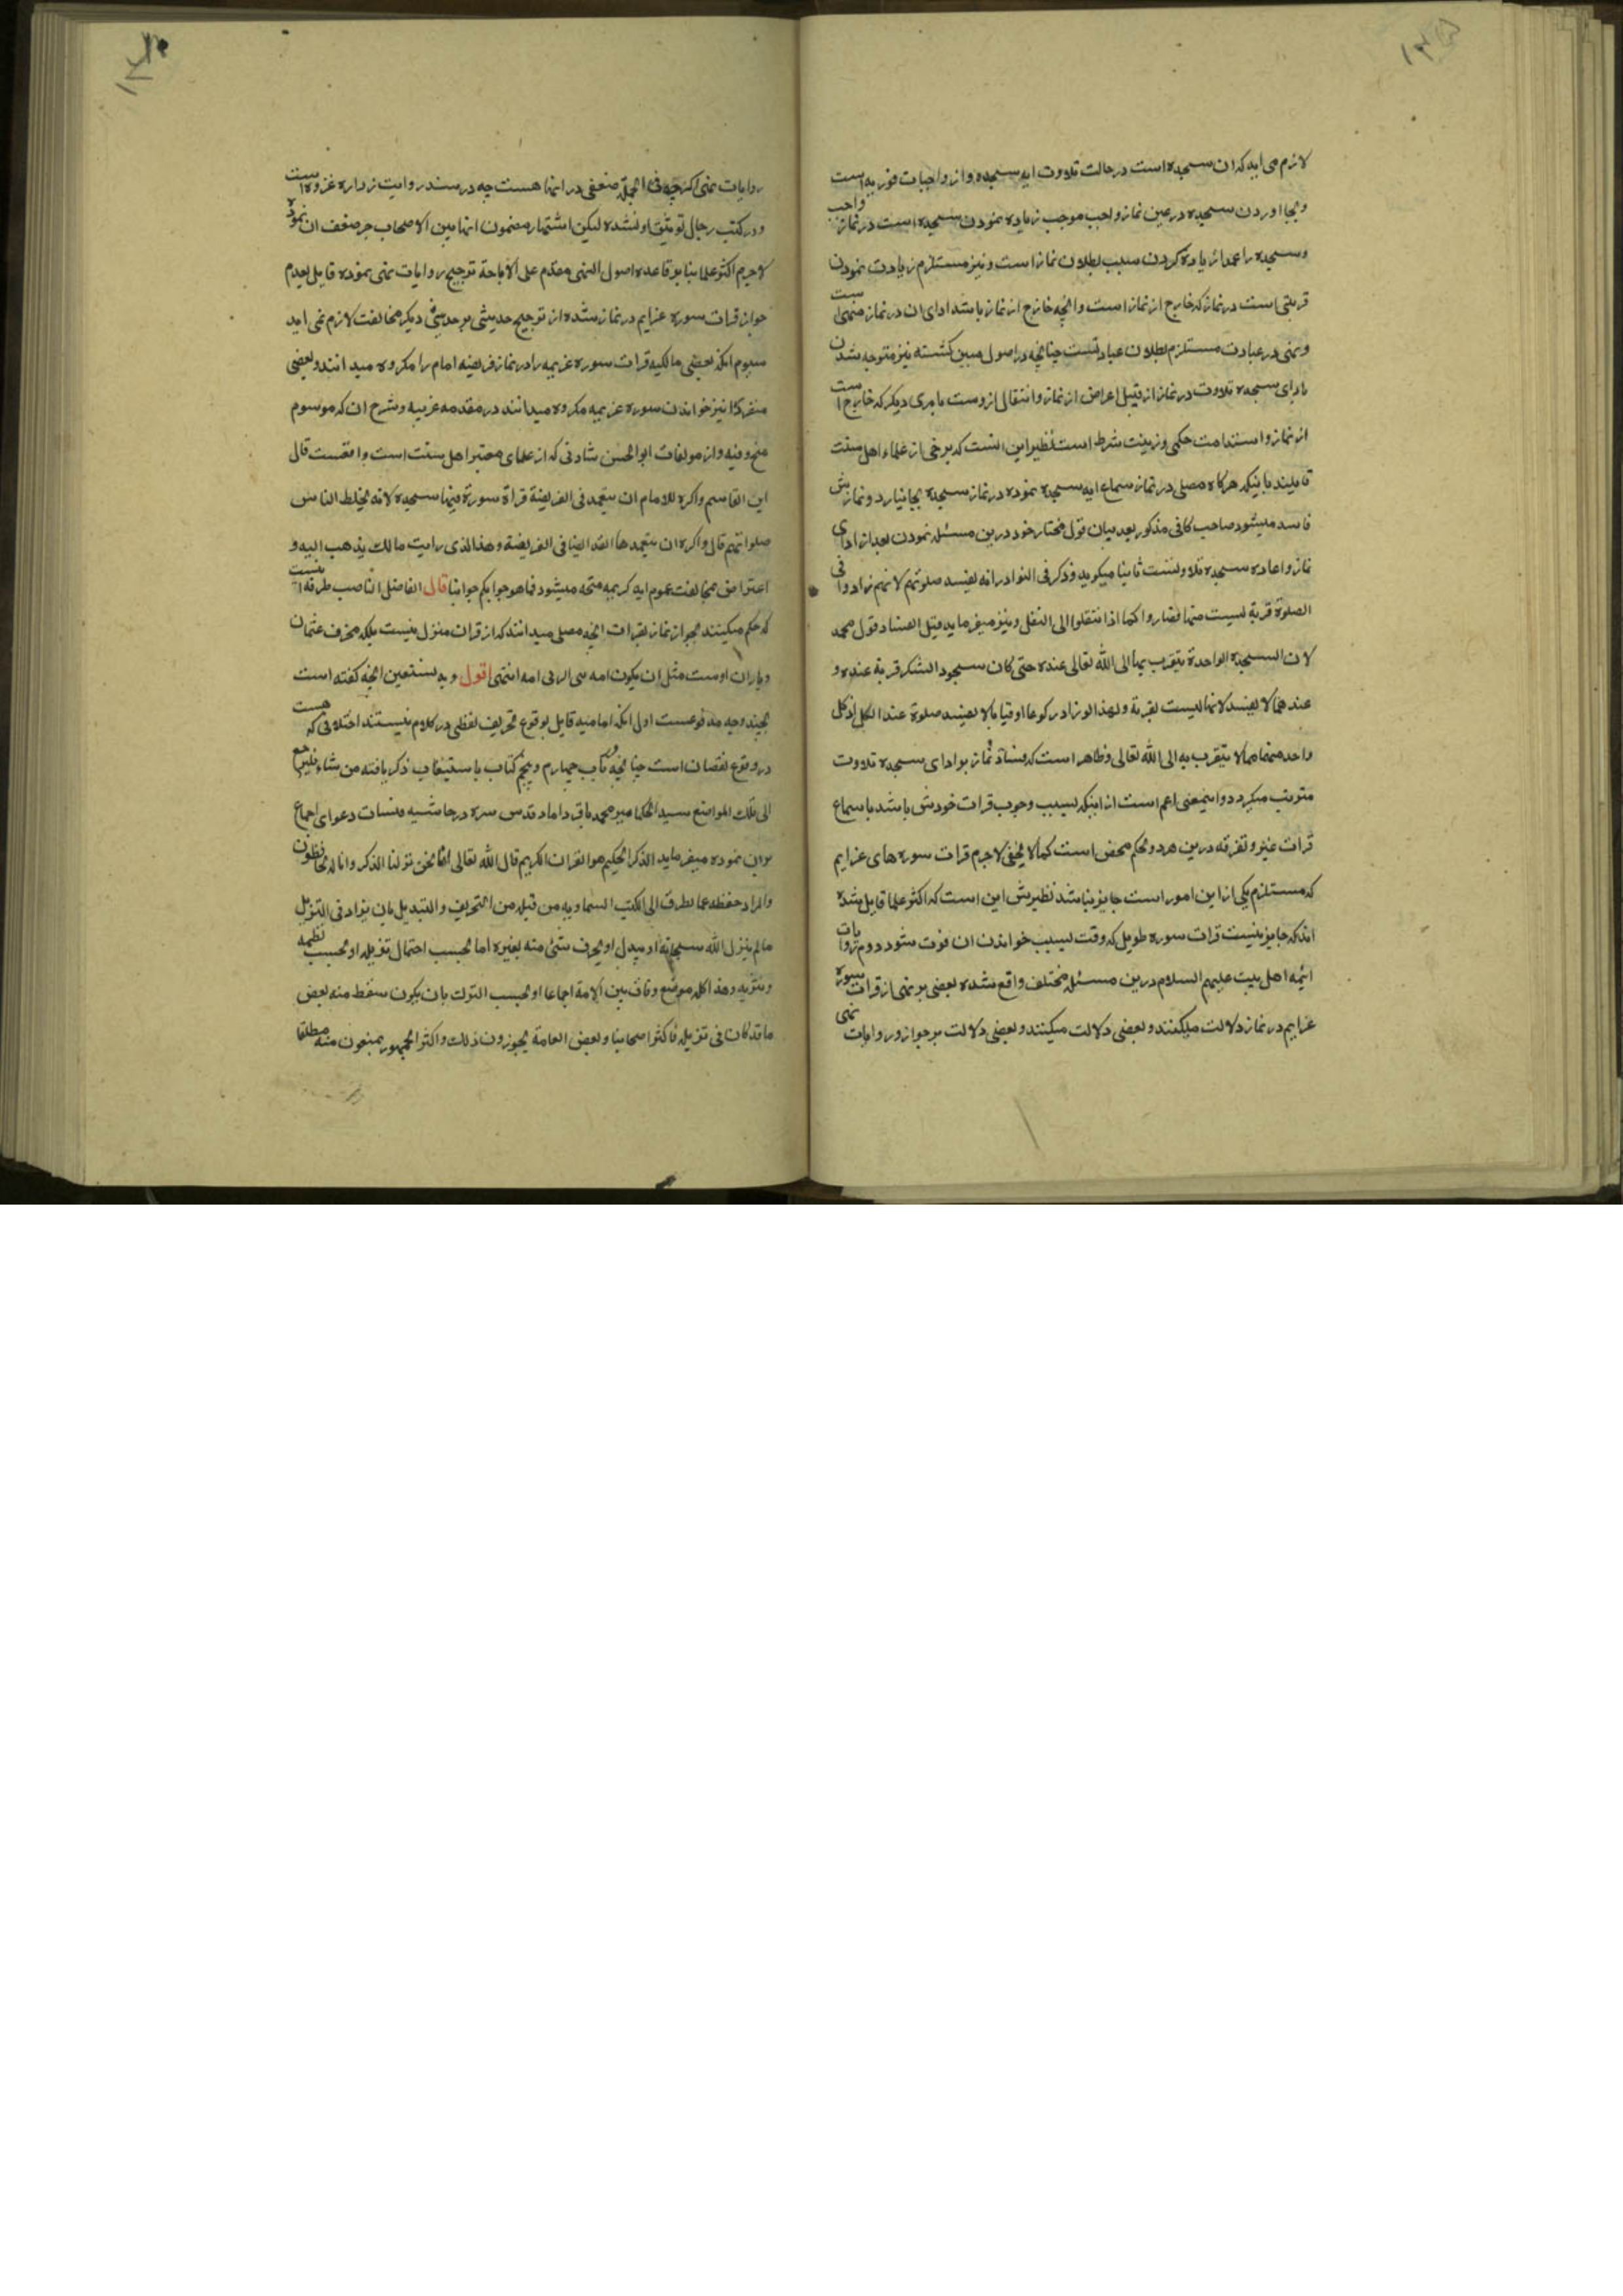 لازم می اید که ان سجده است در حالت تلاوت ایه سجده و از واجبات فوریه است
و بجا اوردن سجده در عین نماز واجب موجب زیاده نمودن سجده است در نماز واجب
و سجده را عمدا زیاده کردن سبب بطلان نماز است و نیز مستلزم زیادت نمودن
قربتی است در نماز که خارج از نماز است و انچه خارج از نماز باشد ادای ان در نماز منهی است
و نهی در عبادت مستلزم بطلان عبادتست چنانچه در اصول مبین کشته نیز متوجه شدن
بادای سجده تلاوت در نماز از قبیل اعراض از نماز و انتقال ازوست بامری دیکر که خارج است
از نماز و استدامت حکمی و نیت شرط است نظیر این انست که برخی از علماء اهل سنت
قایلند باینکه هرکاه مصلی در نماز سماع ایه سجده نموده در نماز سجده بجا نیارد و نمازش
فاسد میشود صاحب کافی مذکور بعد بیان قول مختار خود درین مسئله نمودن بعد از ادای
نماز و اعاده سجده تلاوتست ثانیا میکوید و ذکر فی النوادر انه یفسد صلوتهم لانهم زادوا فی
الصلوة قربة لیست منها فصاروا کما اذا انتقلوا الی النفل و نیز میفرماید قیل الفساد قول محمد
لان السجدة الواحدة یتقرب بها الی الله تعالی عنده حتی کان سجود الشکر قربة عنده و
عندهما لا یفسد لانها لیست بقربة و لهذا لو زاد رکوعا او قیاما لا یفسد صلوة عند الکل اذ کل
واحد منهما مما لا یتقرب به الی الله تعالی و ظاهر است که فساد نماز بر ادای سجده تلاوت
مترتب میکردد و اینمعنی اعم است از اینکه بسبب وجوب قرات خودش باشد یا سماع
قرات غیر و تفرقه درین هر دو تحکم محض است کما لا یخفی لاجرم قرات سوره های عزایم
که مستلزم یکی از این امور است جایز نباشد نظیرش این است که اکثر علما قایل شده
اند که جایز نیست قرات سوره طویل که وقت بسبب خواندن ان فوت شود دوم روایات
ائمه اهل بیت علیهم السلام درین مسئله مختلف واقع شده بعضی بر نهی از قرات سوره
عزایم در نماز دلالت میکنند و بعضی دلالت میکنند و بعضی دلالت بر جواز و روایات نهی
روایات نهی اکرچه فی الجمله ضعفی در انها هست چه در سند روایت زراره عروه است
و در کتب رجال توثیق او نشده لیکن اشتهار مضمون انها بین الاصحاب جبر ضعف ان نموده
لاجرم اکثر علما بنا بر قاعده اصول النهی مقدم علی الاباحة ترجیح روایات نهی نموده قایل بعدم
جواز قرات سوره عزایم در نماز شده از ترجیح حدیثی بر حدیثی دیکر مخالفت لازم نمی اید
سیوم انکه بعضی مالکیه قرات سوره عزیمه را در نماز فریضه امام را مکروه میدانند و بعضی
منفردا نیز خواندن سوره عزیمه مکروه میدانند در مقدمه عزیه و شرح ان که موسوم
و از مولفات ابو الحسن شاذلی که از علمای معتبر اهل سنت است واقعست قال
ابن القاسم و اکره للامام ان یتعمد فی الفریضة قراة سورة فیها سجدة لانه یخلط الناس
صلواتهم قال و اکره ان یتعمدها الفذ ایضا فی الفریضة و هذا الذی رایت مالک یذهب الیه و
اعتراض مخالفت عموم ایه کریمه متجه میشود فما هو جوابکم جوابنا قال الفاضل الناصب طرفه انست
که حکم میکنند بجواز نماز بقرات انچه مصلی میداند که از قران منزل نیست بلکه محرف عثمان
و یاران اوست مثل ان یکون امه هی اربی من امه انتهی اقول و به نستعین انچه کفته است
بچند وجه مدفوعست اول انکه امامیه قایل بوقوع تحریف لفظی در کلام نیستند اختلافی که هست
در وقوع نقصان است چنانچه در باب چهارم و پنجم کتاب باستیعاب ذکر یافته من شاء فلیرجع
الی تلک المواضع سید الحکما میر محمد باقر داماد قدس سره در حاشیه قبسات دعوای اجماع
بران نموده میفرماید الذکر الحکیم هو القران الکریم قال الله تعالی انا نحن نزلنا الذکر و انا له لحافظون
و المراد حفظه عما تطرق الی الکتب السماویه من قبله من التحریف و التبدیل بان یزاد فی التنزیل
ما لم ینزل الله سبحانه او یبدل او یحرف شئ منه بغیره اما بحسب احتمال تنزیله او بحسب نظمه
و هذا کله موضع وفاق بین الامة اجماعا او بحسب الترک بان یکون سقط منه بعض
ما قد کان فی تنزیله فاکثر اصحابنا و بعض العامة یجوزون ذلک و اکثر الجمهور یمنعون منه مطلقا